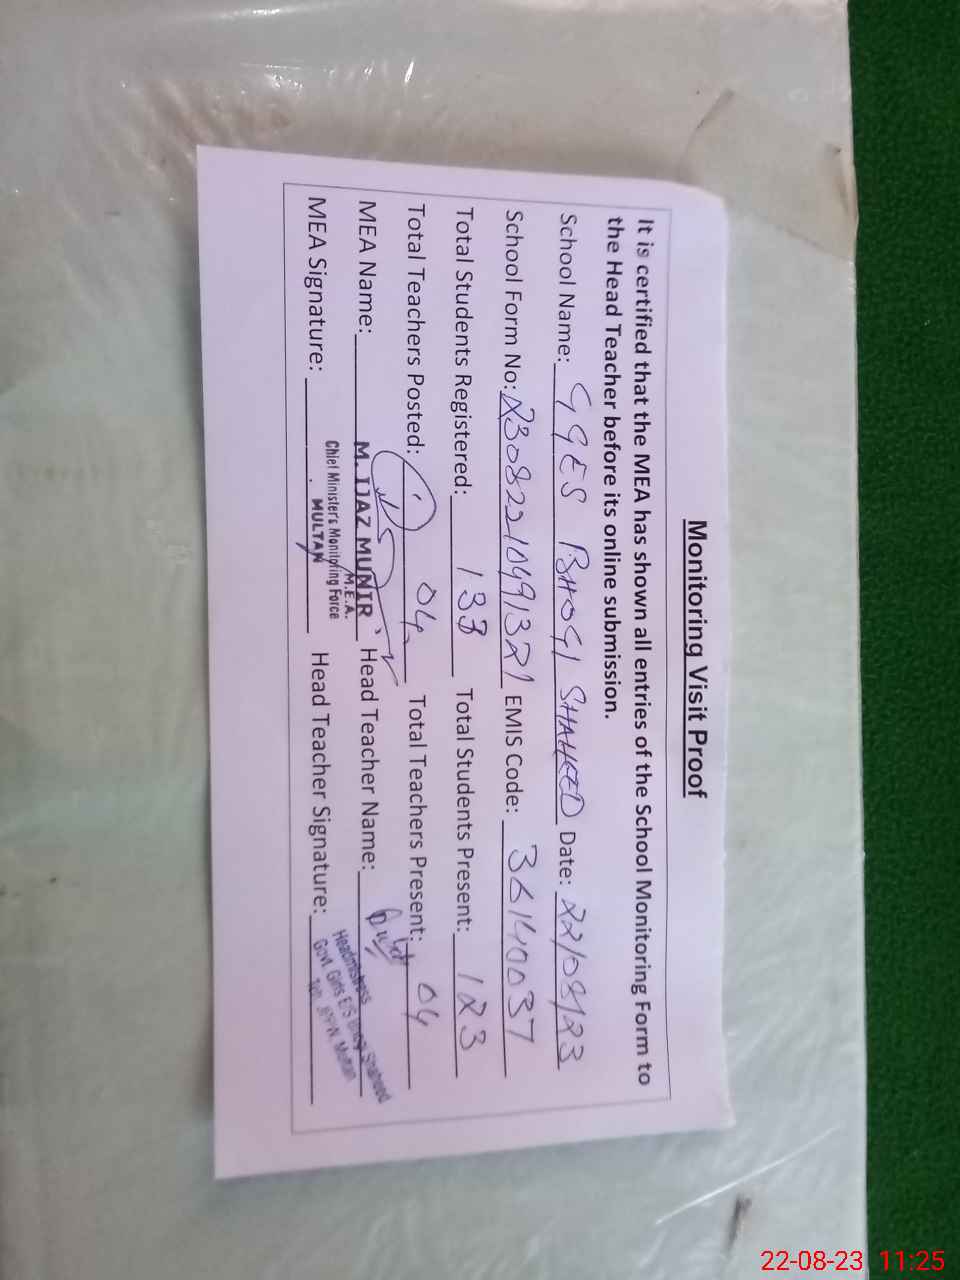 Monitoring Visit Proof
It is certified that the MEA has shown all entries of the School Monitoring Form to
the Head Teacher before its online submission.
School Name: GGES BHOGI SHAHEED Date: 22/08/23
School Form No: 23082210491321 EMIS Code: 36140037
Total Students Registered: 133 Total Students Present: 123
Total Teachers Posted: 04 Total Teachers Present: 04
MEA Name: M. IJAZ MUNIR Head Teacher Name:
M.E.A.
Chief Minister's Monitoring Force
MULTAN
MEA Signature: Head Teacher Signature:
Headmistress
Govt. Girls E/S Shaheed
Multan
22-08-23 11:25